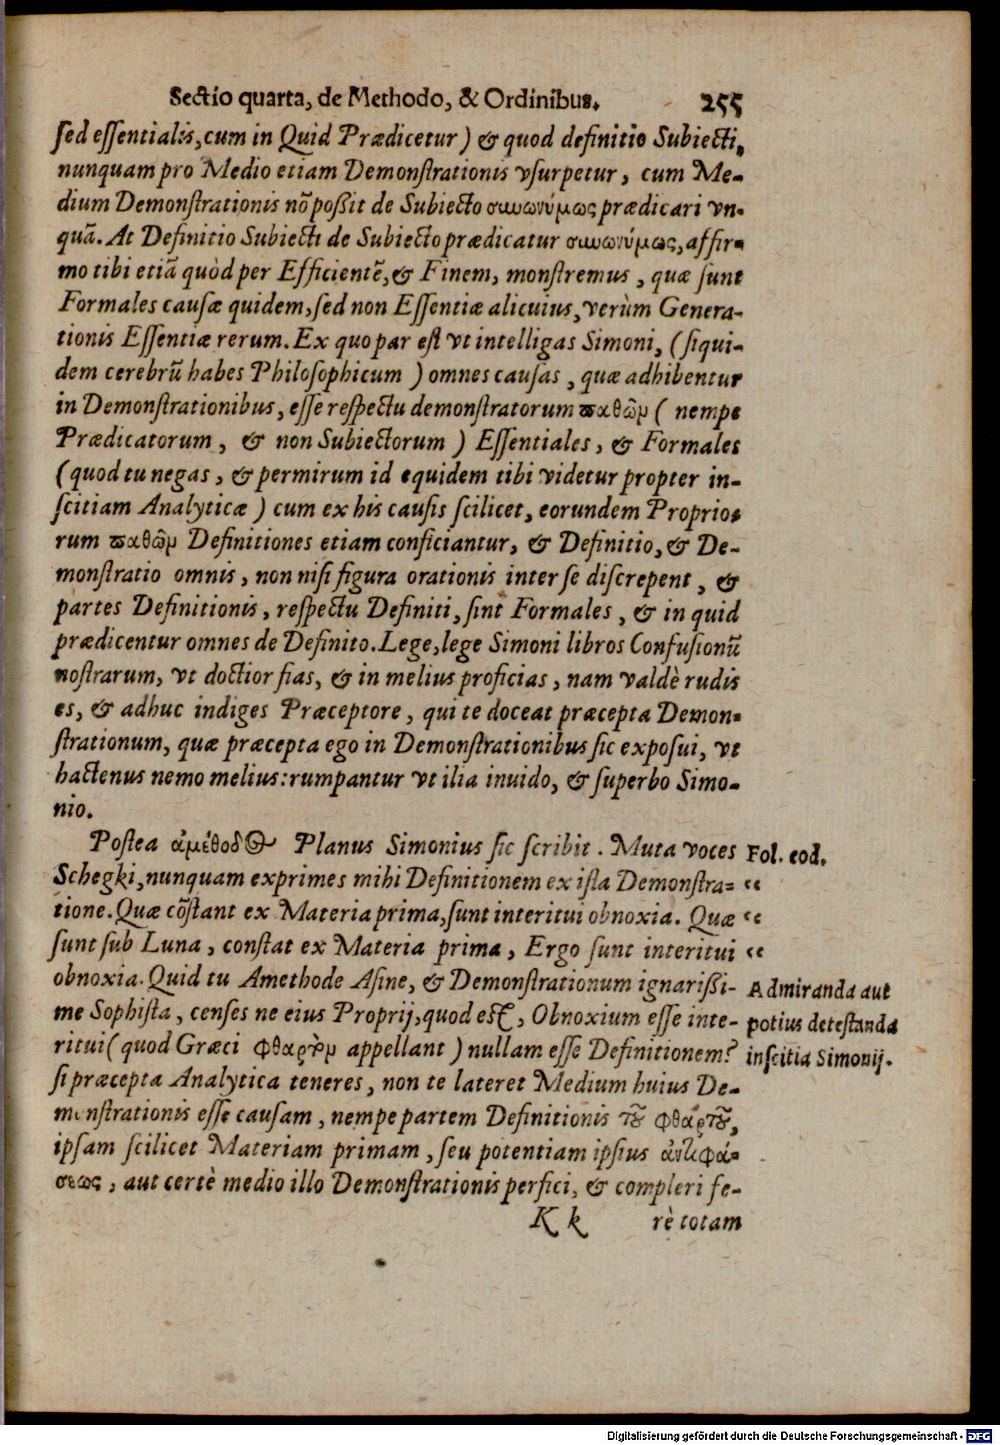 Sectio quarta, de Methodo, & Ordinibus. 255
sed essentialis, cum in Quid Prædicetur ) & quod definitio Subiecti,
nunquam pro Medio etiam Demonstrationis vsurpetur, cum Me-
dium Demonstrationis nõ poßit de Subiecto συνωνύμως prædicari vn-
quã. At Definitio Subiecti de Subiecto prædicatur συνωνύμως, affir-
mo tibi etiã quòd per Efficientẽ, & Finem, monstremus, quæ sunt
Formales causæ quidem, sed non Essentiæ alicuius, verùm Genera-
tionis Essentiæ rerum. Ex quo par est vt intelligas Simoni, ( siqui-
dem cerebrũ habes Philosophicum ) omnes causas, quæ adhibentur
in Demonstrationibus, esse respectu demonstratorum παθῶν ( nempe
Prædicatorum, & non Subiectorum ) Essentiales, & Formales
( quod tu negas, & permirum id equidem tibi videtur propter in-
scitiam Analyticæ ) cum ex his causis scilicet, eorundem Proprio-
rum παθῶν Definitiones etiam conficiantur, & Definitio, & De-
monstratio omnis, non nisi figura orationis inter se discrepent, &
partes Definitionis, respectu Definiti, sint Formales, & in quid
prædicentur omnes de Definito. Lege, lege Simoni libros Confusionũ
nostrarum, vt doctior fias, & in melius proficias, nam valdè rudis
es, & adhuc indiges Præceptore, qui te doceat præcepta Demon-
strationum, quæ præcepta ego in Demonstrationibus sic exposui, vt
hactenus nemo melius: rumpantur vt ilia inuido, & superbo Simo-
nio.
Postea ἀμέθοδος Planus Simonius sic scribit. Muta voces Fol. eod.
Schegki, nunquam exprimes mihi Definitionem ex ista Demonstra- “
tione. Quæ cõstant ex Materia prima, sunt interitui obnoxia. Quæ “
sunt sub Luna, constat ex Materia prima, Ergo sunt interitui “
obnoxia. Quid tu Amethode Asine, & Demonstrationum ignarißi- Admiranda aut
me Sophista, censes ne eius Proprij, quod est, Obnoxium esse inte- potius detestanda
ritui ( quod Græci φθαρτὸν appellant ) nullam esse Definitionem? inscitia Simonij.
si præcepta Analytica teneres, non te lateret Medium huius De-
monstrationis esse causam, nempe partem Definitionis τοῦ φθαρτοῦ,
ipsam scilicet Materiam primam, seu potentiam ipsius ἀντιφά-
σεως, aut certè medio illo Demonstrationis perfici, & compleri fe-
K k rè totam
Digitalisierung gefördert durch die Deutsche Forschungsgemeinschaft - DFG